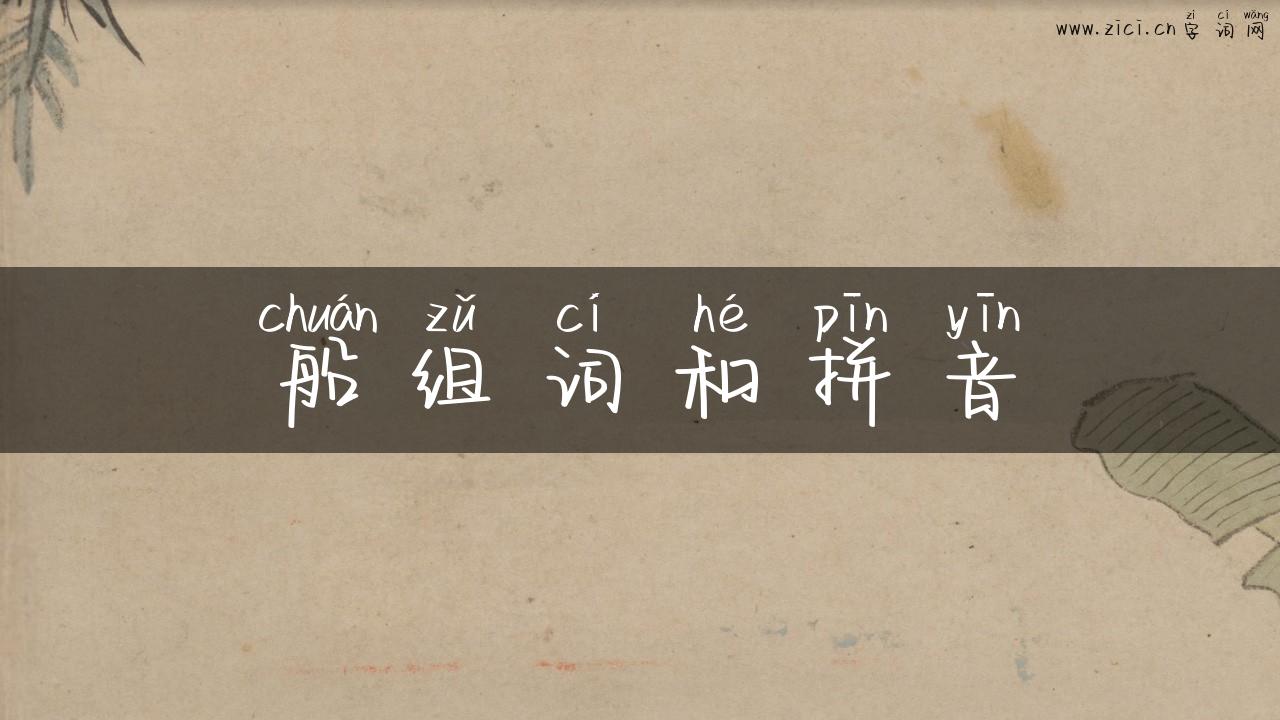 www.zici.cn zì cí wǎng
字词网
chuán zǔ cí hé pīn yīn
船组词和拼音